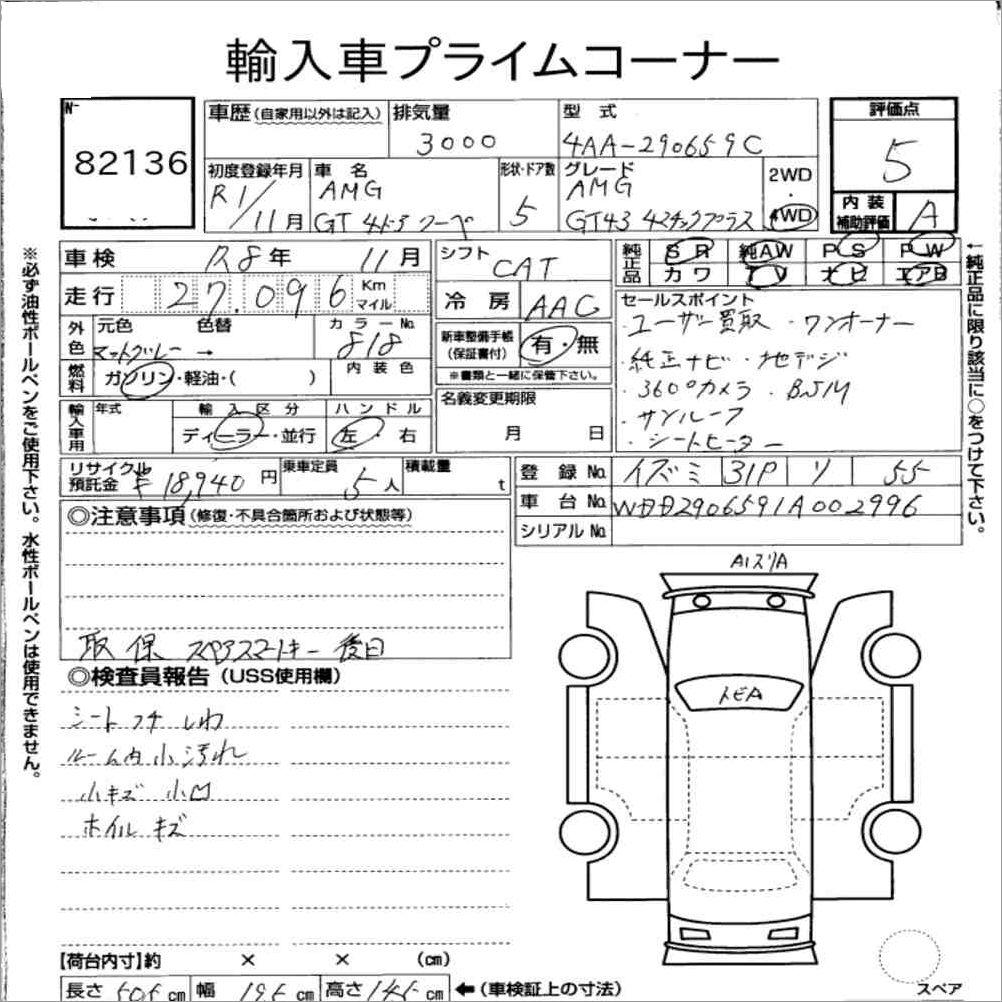 輸入車プライムコーナー
No
82136
車歴 (自家用以外は記入)
排気量
3000
型式
4AA-290659C
評価点
5
初度登録年月
R1/11月
車名
AMG
GT 4ドア クーペ
形状・ドア数
5
グレード
AMG
GT43 4マチックプラス
2WD
・
4WD
内装
補助評価
A
車検 R8年 11月
シフト CAT
純正品 SR 純AW PS PW
カワ TV ナビ エアB
走行 27,096 Km
マイル
冷房 AAC
セールスポイント
・ユーザー買取 ・ワンオーナー
・純正ナビ・地デジ
・360°カメラ・BSM
・サンルーフ
・シートヒーター
外色 元色 色替 カラーNo.
マットグレー → 818
新車整備手帳
(保証書付) 有・無
※書類と一緒に保管下さい。
燃料 ガソリン・軽油・( ) 内装色
名義変更期限
月 日
輸入車用 年式 輸入区分 ハンドル
ディーラー・並行 左・右
リサイクル
預託金 ¥18,940円 乗車定員 5人 積載量 t
登録No. イズミ 31P ソ 55
車台No. WDD2906591A002996
シリアルNo.
◎注意事項 (修復・不具合箇所および状態等)
取 保 スペアスマートキー 後日
◎検査員報告 (USS使用欄)
シート フチ しわ
ルーム内 小汚れ
小キズ 小凹
ホイル キズ
A1スリA
トビA
【荷台内寸】約 × × (cm)
長さ 505cm 幅 195cm 高さ 145cm ←(車検証上の寸法)
スペア
※必ず油性ボールペンをご使用下さい。水性ボールペンは使用できません。
←純正品に限り該当に○をつけて下さい。